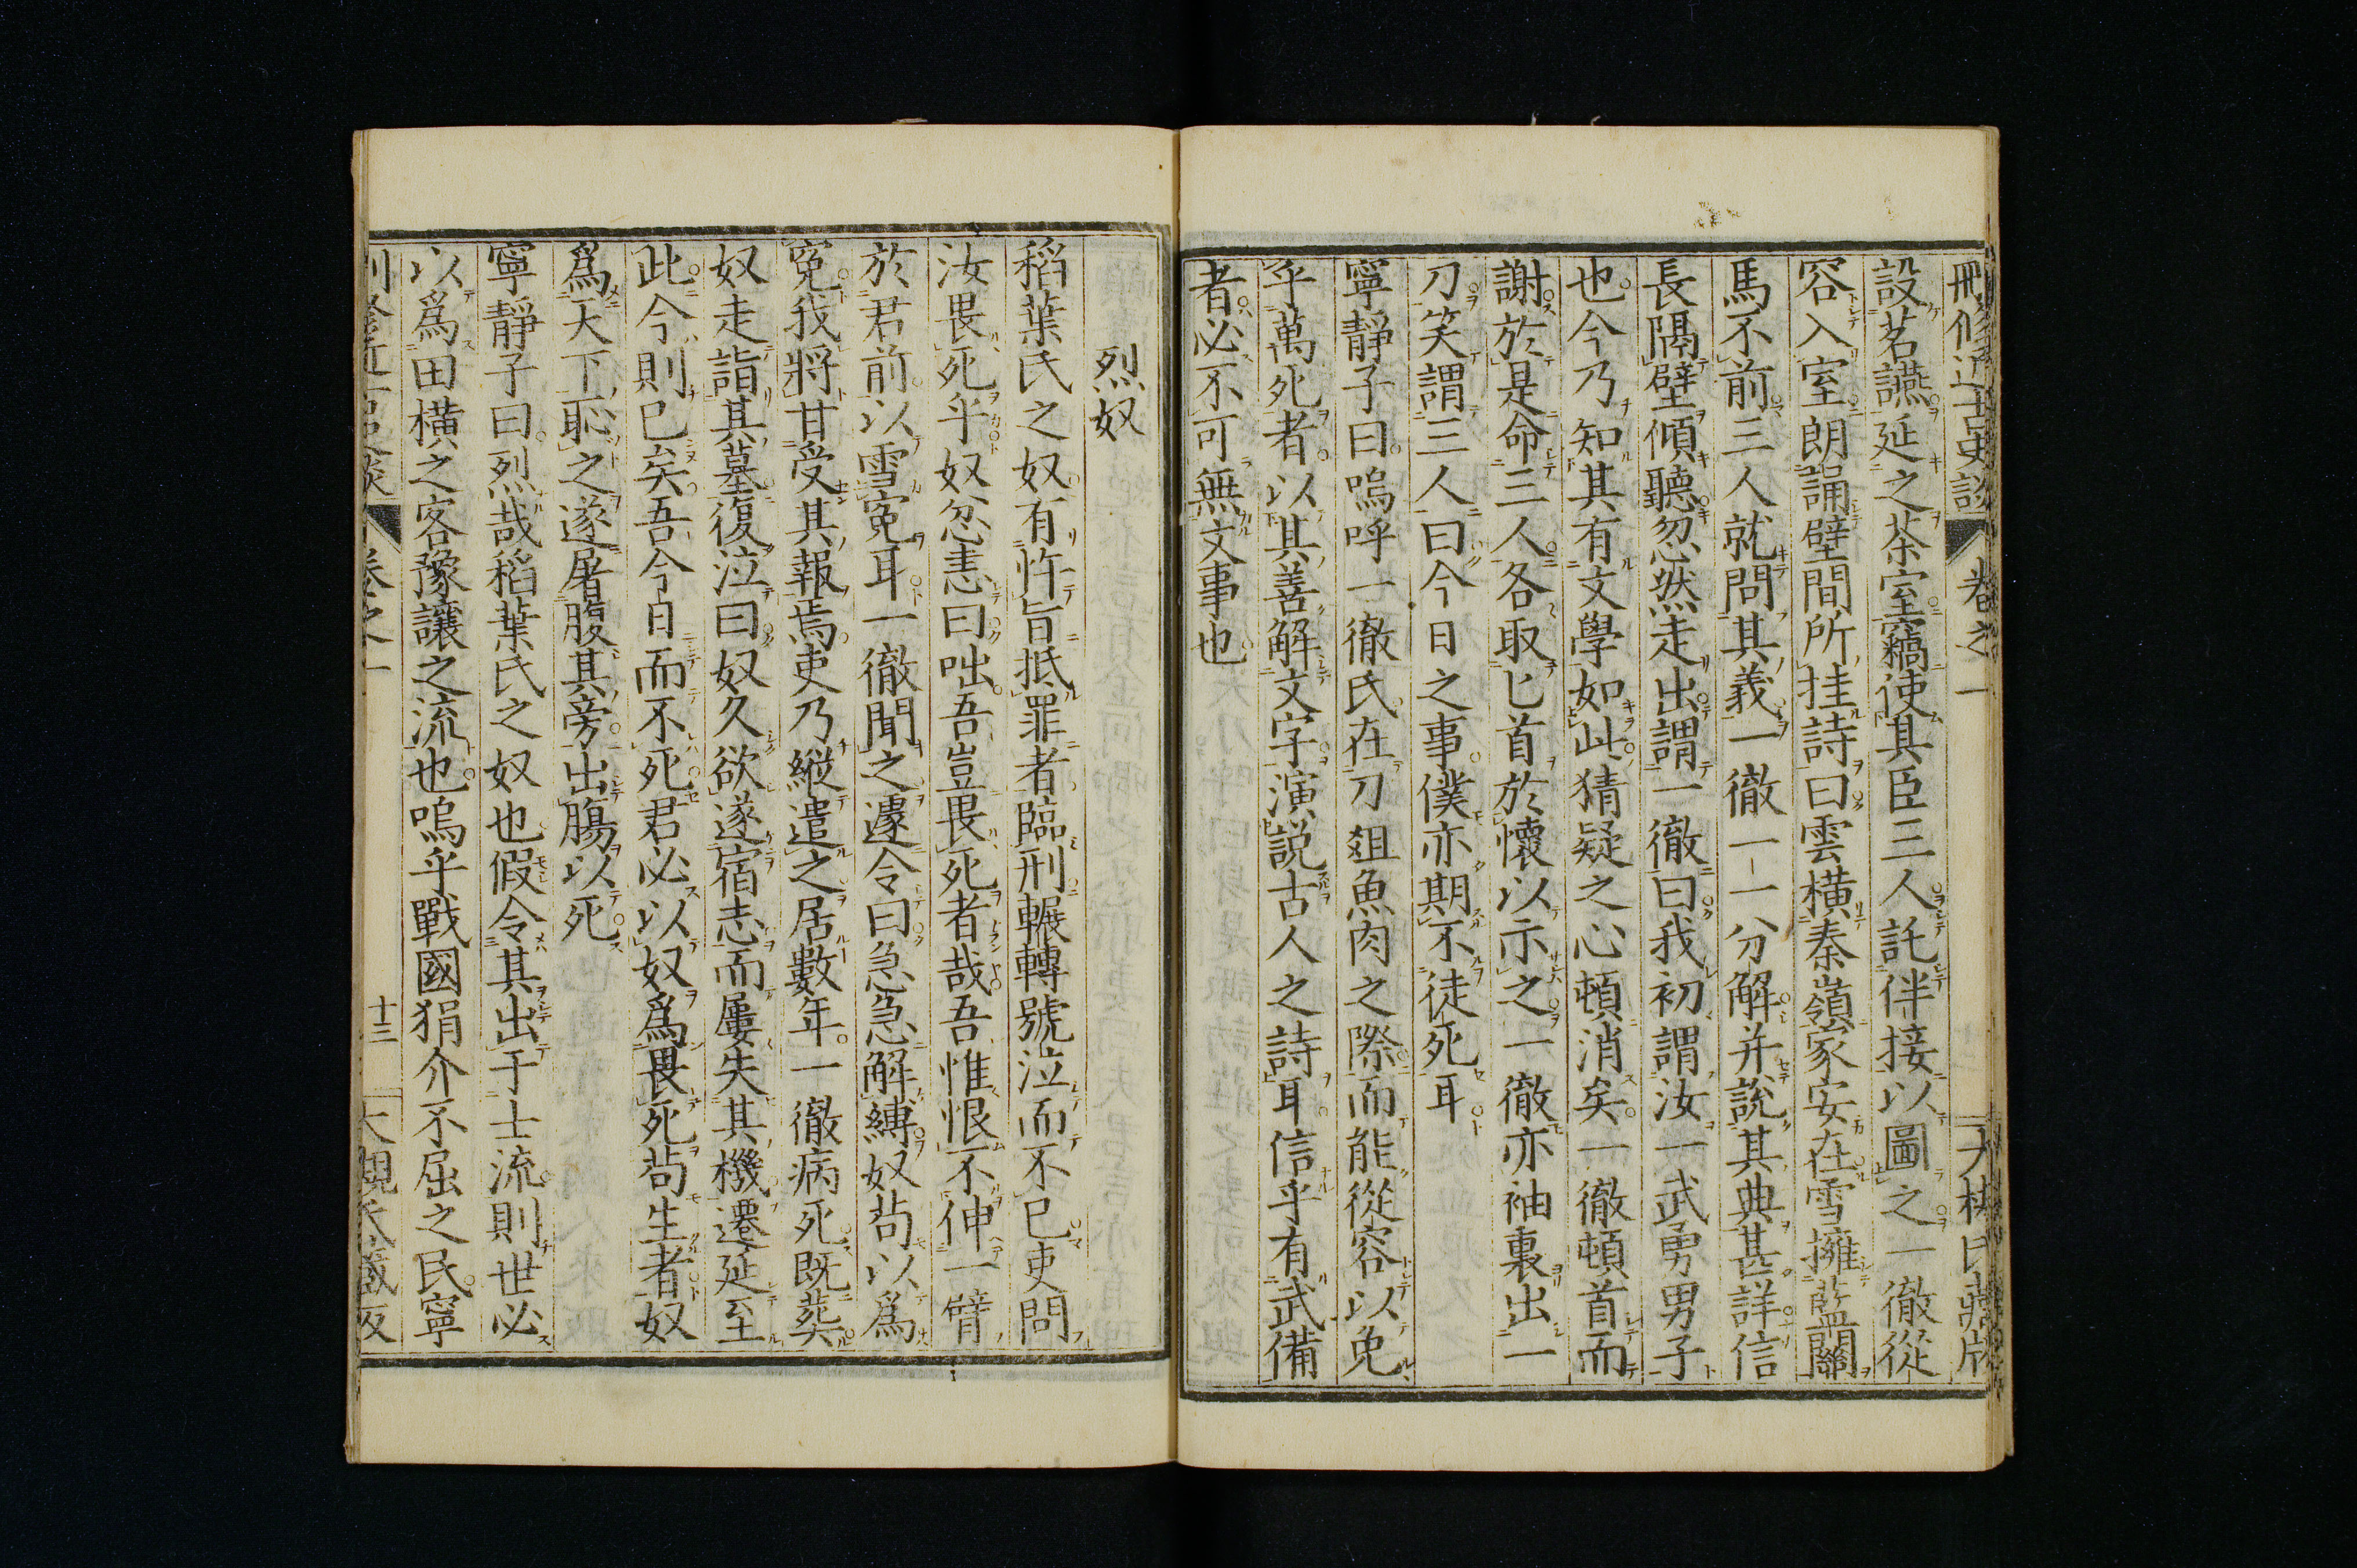 刪修近古史談 卷之一 大槻氏藏版
設茗讌延之茶室竊使其臣三人託伴接以圖之一徹從
容入室朗誦壁間所挂詩曰雲橫秦嶺家安在雪擁藍關
馬不前三人就問其義一徹一一分解并說其典甚詳信
長隔壁傾聽忽然走出謂一徹曰我初謂汝一武勇男子
也今乃知其有文學如此猜疑之心頓消矣一徹頓首而
謝於是命三人各取匕首於懷以示之一徹亦袖裏出一
刀笑謂三人曰今日之事僕亦期不徒死耳
寧靜子曰嗚呼一徹氏在刀俎魚肉之際而能從容以免
乎萬死者以其善解文字演說古人之詩耳信乎有武備
者必不可無文事也
烈奴
稻葉氏之奴有忤旨抵罪者臨刑輾轉號泣而不已吏問
汝畏死乎奴忿恚曰咄吾豈畏死者哉吾惟恨不伸一臂
於君前以雪冤耳一徹聞之遽令曰急急解縛奴苟以爲
冤我將甘受其報焉吏乃縱遣之居數年一徹病死既葬
奴走詣其墓復泣曰奴久欲遂宿志而屢失其機遷延至
此今則已矣吾今日而不死君必以奴爲畏死苟生者奴
爲天下恥之遂屠腹其旁出腸以死
寧靜子曰烈哉稻葉氏之奴也假令其出于士流則世必
以爲田橫之客豫讓之流也嗚乎戰國狷介不屈之民寧
卷之一 十三 大槻氏藏版